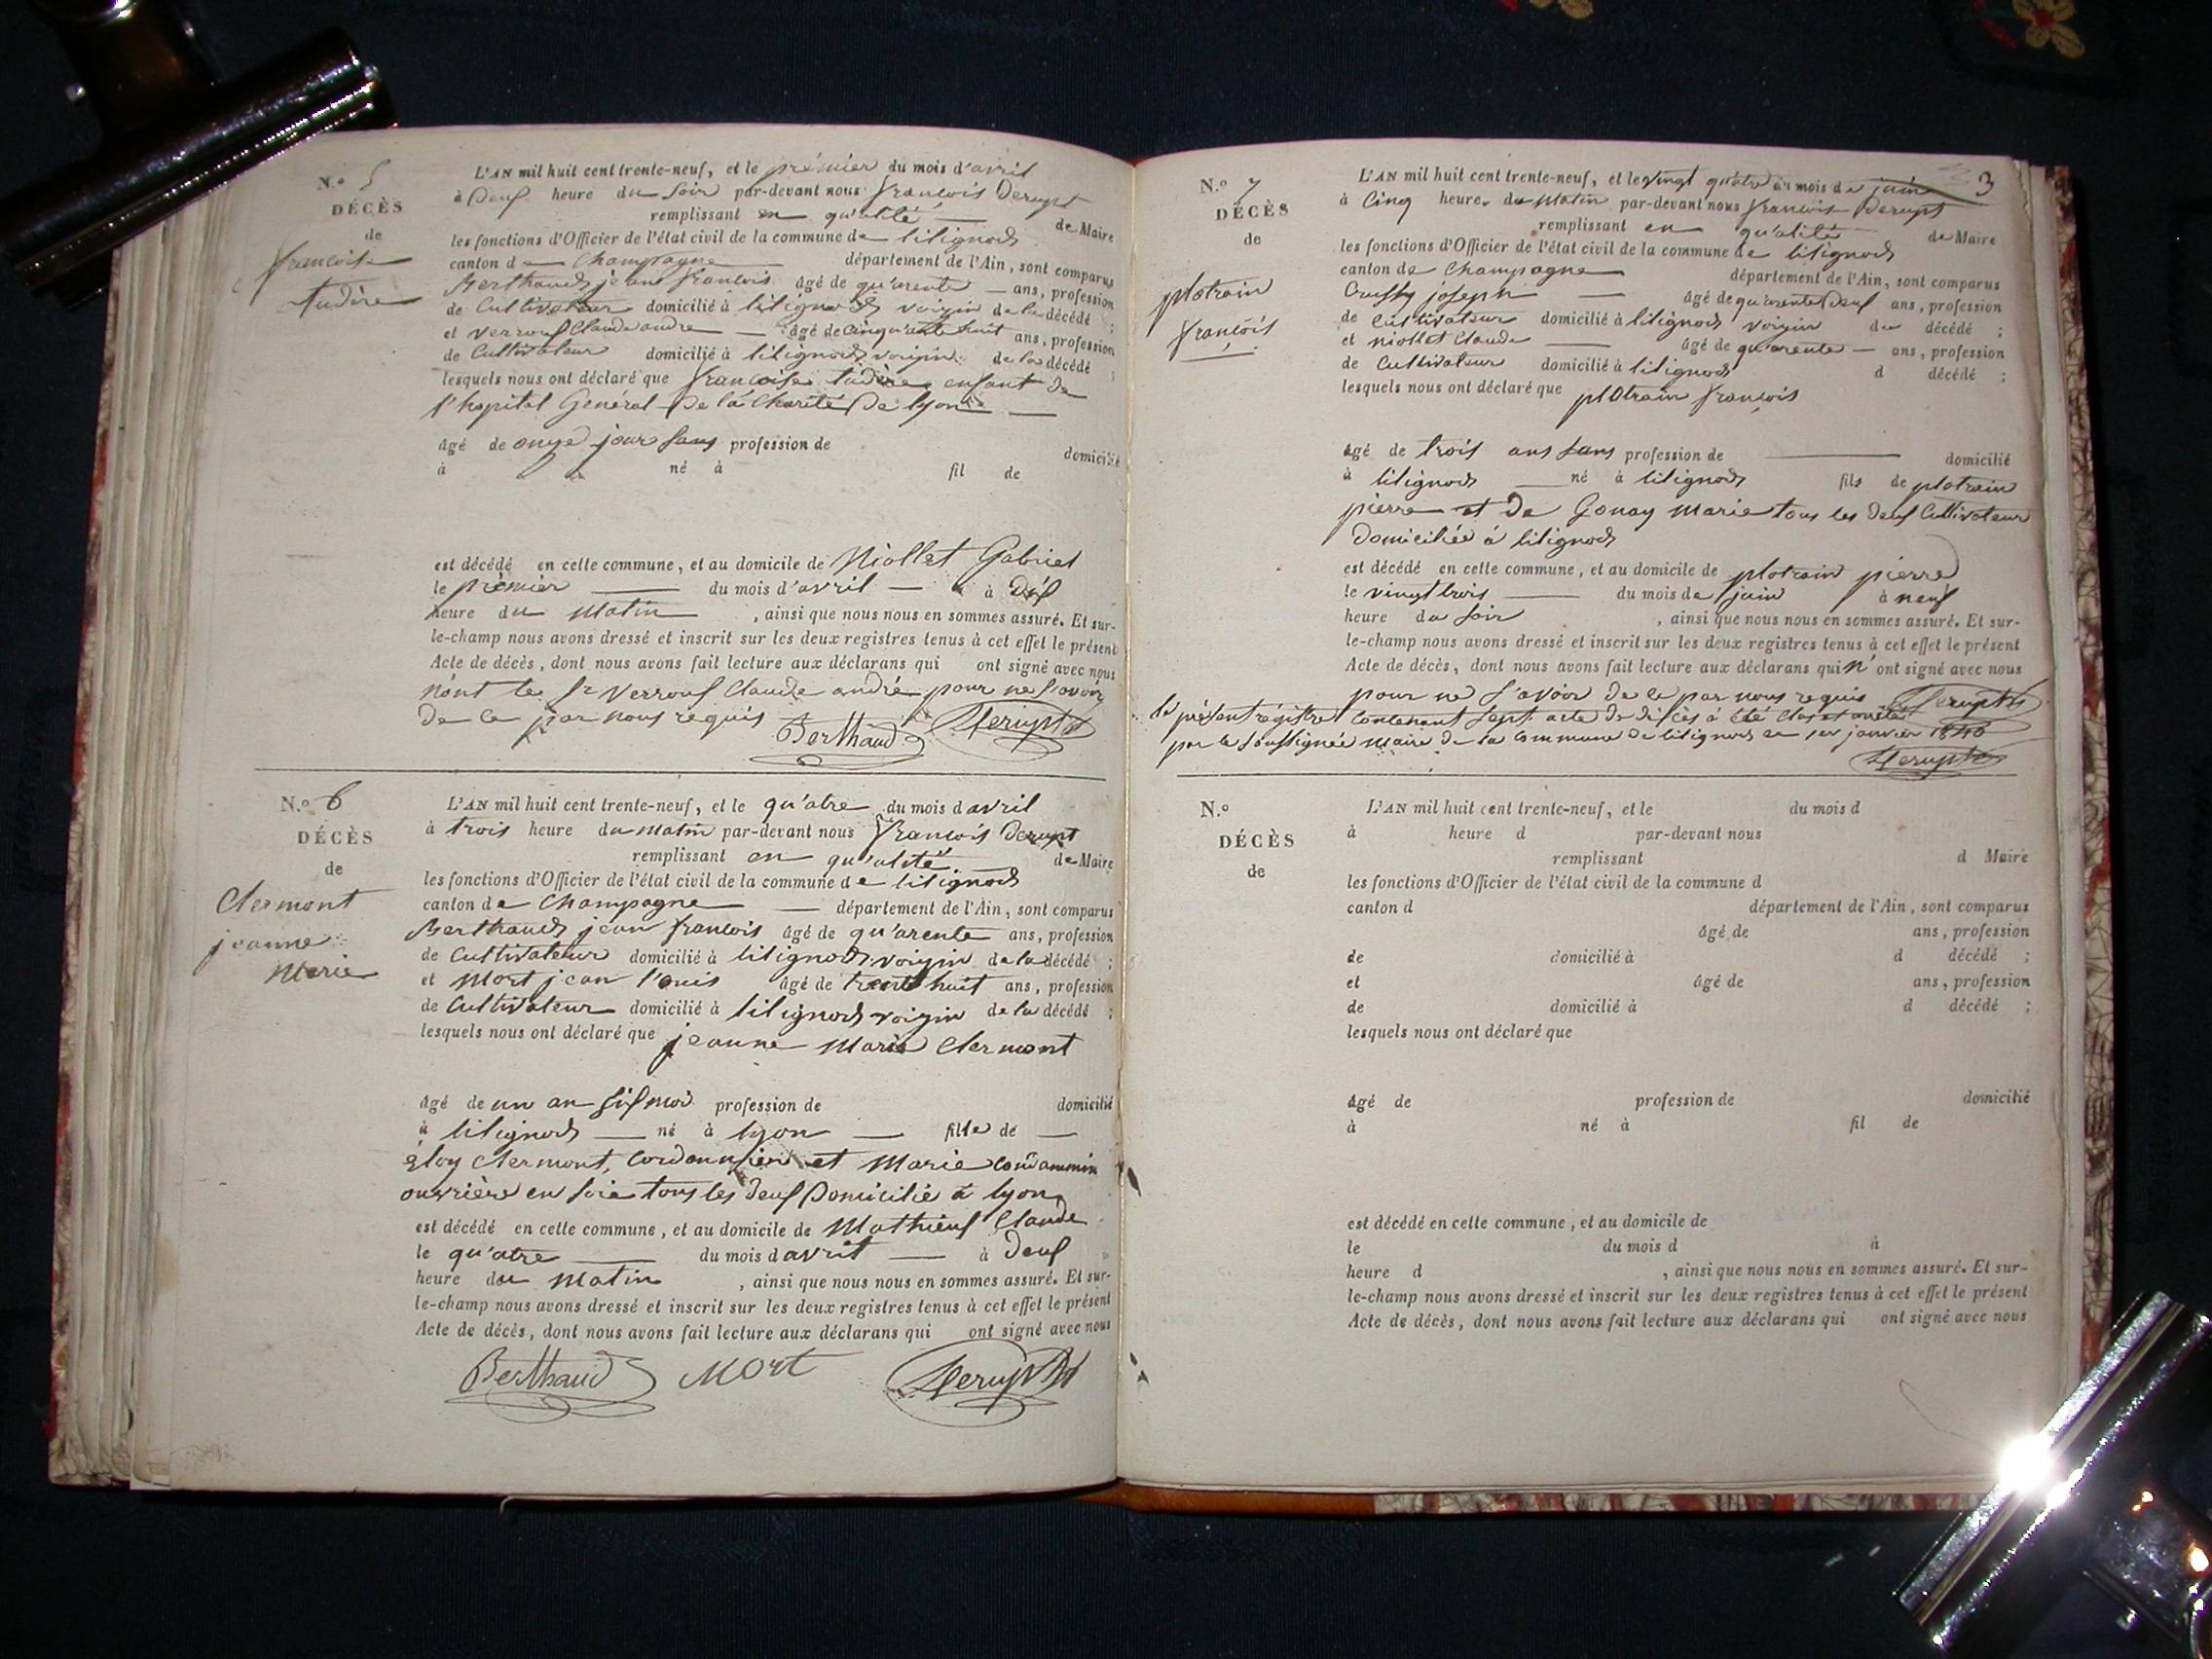 N.o 5
DÉCÈS
de
francoise
tudère
L'AN mil huit cent trente-neuf, et le prémier du mois d'avril
à deux heure du soir par-devant nous francois Derupt
remplissant en qu'alité de Maire
les fonctions d'Officier de l'état civil de la commune de lilignod
canton de Champagne département de l'Ain, sont comparus
Berthaud jean francois âgé de qu'arente ans, profession
de Cultivateur domicilié à lilignods voizin de la décédé ;
et verrouf Claude andre âgé de cinqu'ante huit ans, profession
de Cultivateur domicilié à lilignods voizin de la décédé ;
lesquels nous ont déclaré que francoise tudère enfant de
l'hopital Genéral De la Charité De lyon
âgé de onze jour sans profession de domicilié
à né à fil de
est décédé en cette commune, et au domicile de Niollet Gabriel
le prèmier du mois d'avril à dix
heure du matin, ainsi que nous nous en sommes assuré. Et sur-
le-champ nous avons dressé et inscrit sur les deux registres tenus à cet effet le présent
Acte de décès, dont nous avons fait lecture aux déclarans qui ont signé avec nous
n'ont le Sr verrouf Claude andré pour ne s'avoir
de ce par nous requis Berthaud Derupt
N.o 6
DÉCÈS
de
Clermont
jeanne
Marie
L'AN mil huit cent trente-neuf, et le qu'atre du mois d avril
à trois heure du matin par-devant nous francois Derupt
remplissant en qu'alité de Maire
les fonctions d'Officier de l'état civil de la commune de lilignod
canton de Champagne département de l'Ain, sont comparus
Berthaud jean francois âgé de qu'arente ans, profession
de Cultivateur domicilié à lilignods voizin de la décédé ;
et Mort jean l'ouis âgé de trente huit ans, profession
de Cultivateur domicilié à lilignods voizin de la décédé ;
lesquels nous ont déclaré que jeanne Marie Clermont
âgé de un an six moi profession de domicilié
à lilignods né à lyon fille de
éloy Clermont, Cordonnier et Marie Condammin
ouvrière en soie tous les deux Domicilié à lyon
est décédé en cette commune, et au domicile de Mathieuf Claude
le qu'atre du mois d avril à deux
heure du matin, ainsi que nous nous en sommes assuré. Et sur-
le-champ nous avons dressé et inscrit sur les deux registres tenus à cet effet le présent
Acte de décès, dont nous avons fait lecture aux déclarans qui ont signé avec nous
Berthaud Mort Derupt
3
N.o 7
DÉCÈS
de
plotrain
francois
L'AN mil huit cent trente-neuf, et le vingt quatre du mois de juin
à Cinq heure du Matin par-devant nous francois Derupt
remplissant en qu'alité de Maire
les fonctions d'Officier de l'état civil de la commune de lilignod
canton de Champagne département de l'Ain, sont comparus
joseph âgé de qu'arente deux ans, profession
de Cultivateur domicilié à lilignods voizin du décédé ;
et niollet Claude âgé de qu'arente ans, profession
de Cultivateur domicilié à lilignods d décédé ;
lesquels nous ont déclaré que plotrain francois
âgé de trois ans sans profession de domicilié
à lilignods né à lilignods fils de plotrain
pierre et de Gonay Marie tous les deux Cultivateur
domiciliée à lilignods
est décédé en cette commune, et au domicile de plotrain pierre
le vingt trois du mois de juin à neuf
heure du soir, ainsi que nous nous en sommes assuré. Et sur-
le-champ nous avons dressé et inscrit sur les deux registres tenus à cet effet le présent
Acte de décès, dont nous avons fait lecture aux déclarans qui n'ont signé avec nous
pour ne s'avoir de ce par nous requis Derupt
le présent régistre Contenant sept acte de décès à été clos et arrêté
par le soussignée maire de la Commune de lilignods ce 1er janvier 1840
Derupt
N.o
DÉCÈS
de
L'AN mil huit cent trente-neuf, et le du mois d
à heure d par-devant nous
remplissant d Maire
les fonctions d'Officier de l'état civil de la commune d
canton d département de l'Ain, sont comparus
âgé de ans, profession
de domicilié à d décédé ;
et âgé de ans, profession
de domicilié à d décédé ;
lesquels nous ont déclaré que
âgé de profession de domicilié
à né à fil de
est décédé en cette commune, et au domicile de
le du mois d à
heure d, ainsi que nous nous en sommes assuré. Et sur-
le-champ nous avons dressé et inscrit sur les deux registres tenus à cet effet le présent
Acte de décès, dont nous avons fait lecture aux déclarans qui ont signé avec nous